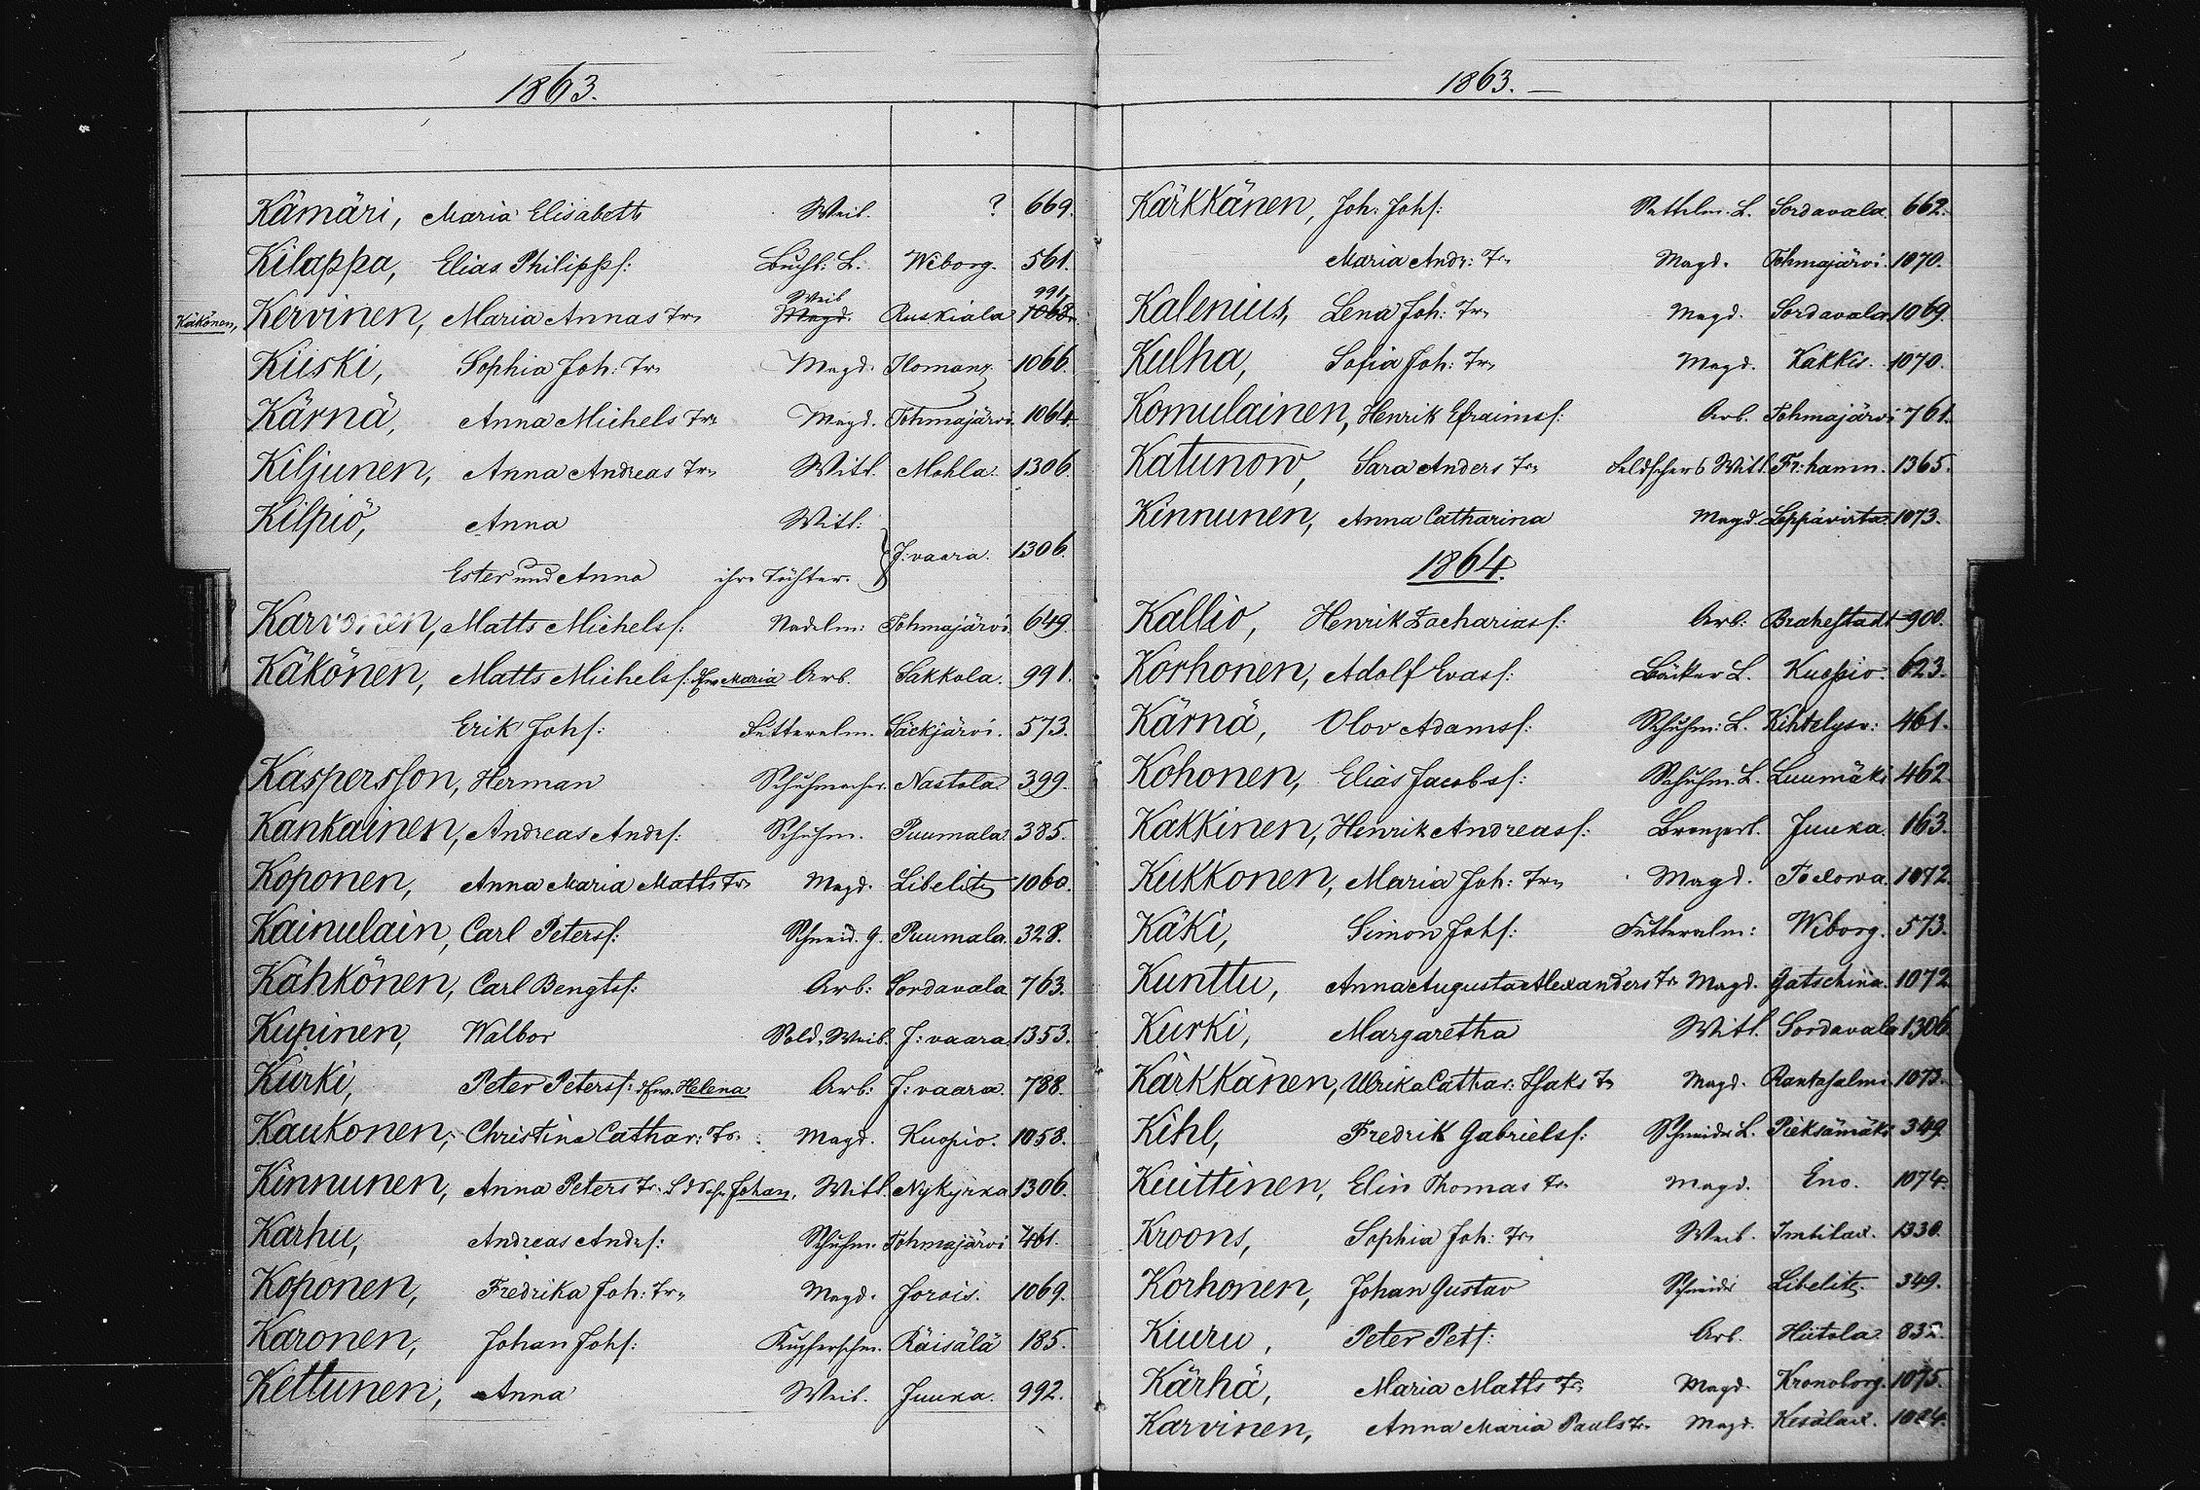 1863.
Kämäri, Maria Elisabeth Weib. ? 669.
Kilappa, Elias Philipps: Buchb: L. Wiborg. 561.
Weib 991
Käkönen, Kervinen, Maria Annas Tr. Magd. Ruskiala 1068.
Kiiski, Sophia Joh: Tr. Magd. Ilomanz 1066.
Kärnä, Anna Michels Tr. Magd. Tohmajärvi 1064.
Kiljunen, Anna Andreas Tr. Witl. Mohla. 1306.
Kilpiö, Anna Witl:
J:vaara. 1306.
Ester und Anna ihre Töchter.
Karvonen, Matts Michelss: Nadelm: Tohmajärvi 649.
Käkönen, Matts Michelss: Maria Arb. Sakkola. 991.
Erik Johs: Futteralm. Säckjärvi. 573.
Kaspersson, Herman Schuhmacher. Nastola 399.
Kankainen, Andreas Ands: Schuhm. Puumala 385.
Koponen, Anna Maria Matts Tr. Magd. Libelitz 1060.
Kainulain, Carl Peterss: Schneid. G. Puumala. 328.
Kähkönen, Carl Bengtss: Arb: Sordavala 763.
Kupinen, Walbor Sold. Weib. J:vaara. 1353.
Kurki, Peter Peterss: Helena Arb: J:vaara. 788.
Kaukonen, Christina Cathar: Tr. Magd. Kuopio. 1058.
Kinnunen, Anna Peters Tr. Johan. Witl. Nykyrka 1306.
Karhu, Andreas Ands: Schuhm. Tohmajärvi 461.
Koponen, Fredrika Joh: Tr. Magd. Jorois. 1069.
Karonen, Johan Johs: Kupferschm. Räisälä 185.
Kettunen, Anna Weib. Juuka. 992.
1863.
Kärkkänen, Joh. Johs: Sattelm. L. Sordavala 662.
Maria Andr: Tr. Magd. Tohmajärvi. 1070.
Kalenius, Lena Joh: Tr. Magd. Sordavala 1069.
Kulha, Sofia Joh: Tr. Magd. Kakkis. 1070.
Komulainen, Henrik Efraimss: Arb. Tohmajärvi 761.
Katunow, Sara Anders Tr. Feldschers Witl. Fr:hamn. 1365.
Kinnunen, Anna Catharina Magd. Leppävirta 1073.
1864.
Kallio, Henrik Zachariass: Arb: Brahestadt 900.
Korhonen, Adolf Evass: Bäcker L. Kuopio. 623.
Kärnä, Olov Adamss: Schuhm: L. Kihtelysv: 461.
Kohonen, Elias Jacobss: Schuhm. L. Luumäki 462.
Kakkinen, Henrik Andreass: Bronzerl. Juuka. 163.
Kukkonen, Maria Joh: Tr. Magd. 1072.
Käki, Simon Johs: Futteralm: Wiborg. 573.
Kunttu, Anna Augusta Alexanders Tr Magd. Gatschina. 1072
Kurki, Margaretha Witl. Sordavala 1306
Kärkkänen, Ulrika Cathar: Isaks Tr Magd. Rantasalmi 1073.
Kihl, Fredrik Gabrielss: Schneider L. Pieksämäki 349.
Kuittinen, Elin Thomas Tr. Magd. Eno. 1074.
Kroons, Sophia Joh: Tr. Weib. Imbilax. 1330.
Korhonen, Johan Gustav Schneider Libelitz. 349.
Kiuru, Peter Pets: Arb. Hiitola 832.
Kärhä, Maria Matts Tr. Magd. Kronoborg. 1075.
Karvinen, Anna Maria Pauls Tr. Magd. Kesälax. 1024.